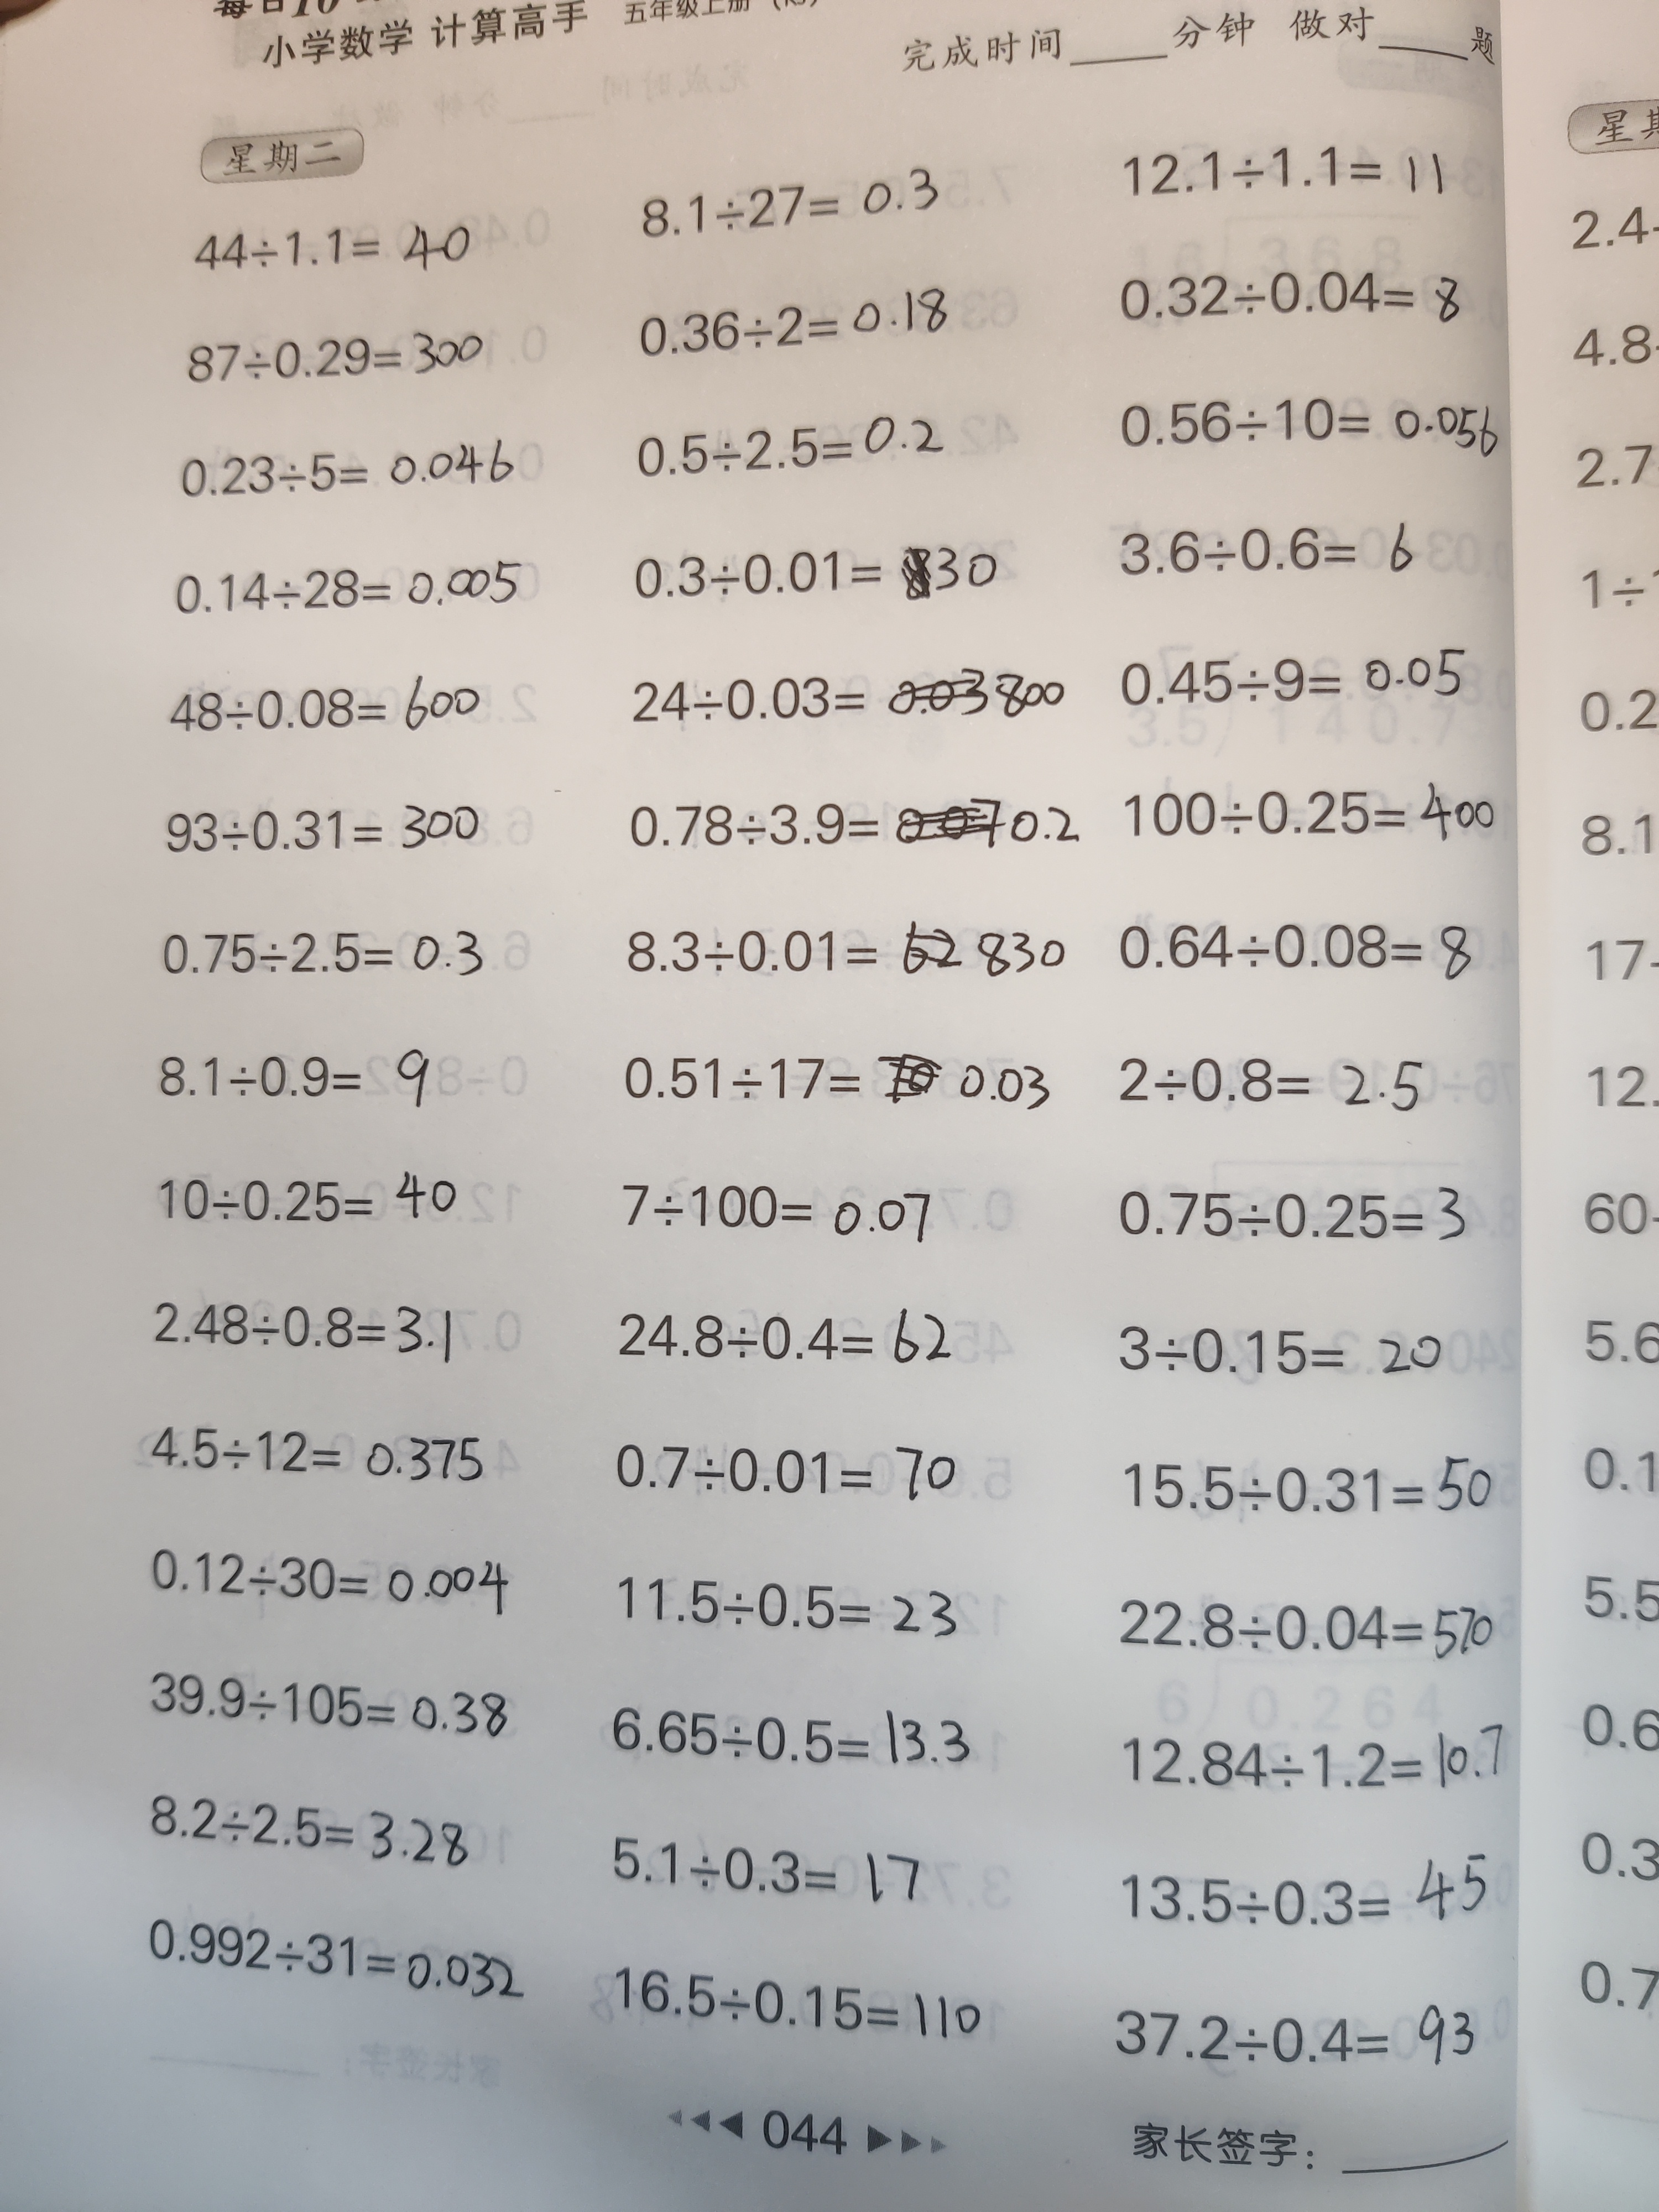 小学数学 计算高手 五年级上册
完成时间____分钟 做对____题
星期二
44÷1.1= 40
87÷0.29= 300
0.23÷5= 0.046
0.14÷28= 0.005
48÷0.08= 600
93÷0.31= 300
0.75÷2.5= 0.3
8.1÷0.9= 9
10÷0.25= 40
2.48÷0.8= 3.1
4.5÷12= 0.375
0.12÷30= 0.004
39.9÷105= 0.38
8.2÷2.5= 3.28
0.992÷31= 0.032
8.1÷27= 0.3
0.36÷2= 0.18
0.5÷2.5= 0.2
0.3÷0.01= 30
24÷0.03= 800
0.78÷3.9= 0.2
8.3÷0.01= 62 830
0.51÷17= 0.03
7÷100= 0.07
24.8÷0.4= 62
0.7÷0.01= 70
11.5÷0.5= 23
6.65÷0.5= 13.3
5.1÷0.3= 17
16.5÷0.15= 110
12.1÷1.1= 11
0.32÷0.04= 8
0.56÷10= 0.056
3.6÷0.6= 6
0.45÷9= 0.05
100÷0.25= 400
0.64÷0.08= 8
2÷0.8= 2.5
0.75÷0.25= 3
3÷0.15= 20
15.5÷0.31= 50
22.8÷0.04= 570
12.84÷1.2= 10.7
13.5÷0.3= 45
37.2÷0.4= 93
044
家长签字：
星
2.4
4.8
2.7
1÷
0.2
8.1
17
12.
60
5.6
0.1
5.5
0.6
0.3
0.7